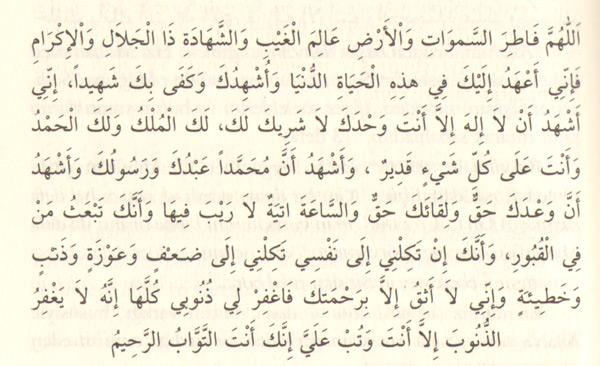 اَللّٰهُمَّ فَاطِرَ السَّمٰوَاتِ وَالْأَرْضِ عَالِمَ الْغَيْبِ وَالشَّهَادَةِ ذَا الْجَلَالِ وَالْإِكْرَامِ
فَإِنّي أَعْهَدُ إِلَيْكَ فِي هذِهِ الْحَيَاةِ الدُّنْيَا وَأُشْهِدُكَ وَكَفَى بِكَ شَهِيداً، إِنّي
أَشْهَدُ أَنْ لاَ إِلهَ إِلاَّ أَنْتَ وَحْدَكَ لاَ شَرِيكَ لَكَ، لَكَ الْمُلْكُ وَلَكَ الْحَمْدُ
وَأَنْتَ عَلَى كُلِّ شَيْءٍ قَدِيرٌ ، وَأَشْهَدُ أَنَّ مُحَمَّداً عَبْدُكَ وَرَسُولُكَ وَأَشْهَدُ
أَنَّ وَعْدَكَ حَقٌّ وَلِقَائَكَ حَقٌّ وَالسَّاعَةَ اتِيَةٌ لاَ رَيْبَ فِيهَا وَأَنَّكَ تَبْعَثُ مَنْ
فِي الْقُبُورِ، وَأَنَّكَ إِنْ تَكِلْنِي إِلَى نَفْسِي تَكِلْنِي إِلى ضَعْفٍ وَعَوْرَةٍ وَذَنْبٍ
وَخَطِيئَةٍ وَإِنِي لاَ أَثِقُ إِلاَّ بِرَحْمَتِكَ فَاغْفِرْ لِي ذُنُوبِي كُلَّهَا إِنَّهُ لاَ يَغْفِرُ
الذُّنُوبَ إِلاَّ أَنْتَ وَتُبْ عَلَيَّ إِنَّكَ أَنْتَ التَّوَّابُ الرَّحِيمُ